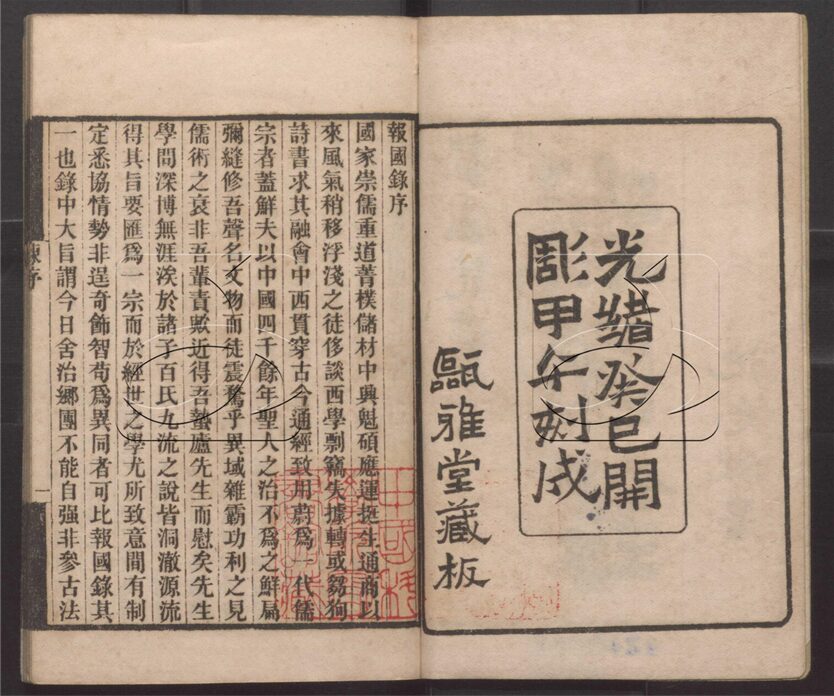 光緒癸巳開
彫甲午刻成
甌雅堂藏板
報國錄序
國家崇儒重道菁樸儲材中興魁碩應運挺生通商以
來風氣稍移浮淺之徒侈談西學剽竊失據轉或芻狗
詩書求其融會中西貫穿古今通經致用蔚爲一代儒
宗者蓋鮮夫以中國四千餘年聖人之治不爲之鮮扁
彌縫修吾聲名文物而徒震驚乎異域雜霸功利之見
儒術之衰非吾輩責歟近得吾蟄廬先生而慰矣先生
學問深博無涯涘於諸子百氏九流之說皆洞澈源流
得其旨要匯爲一宗而於經世之學尤所致意間有制
定悉協情勢非逞奇飾智苟爲異同者可比報國錄其
一也錄中大旨謂今日舍治鄉團不能自强非參古法
陳序
一